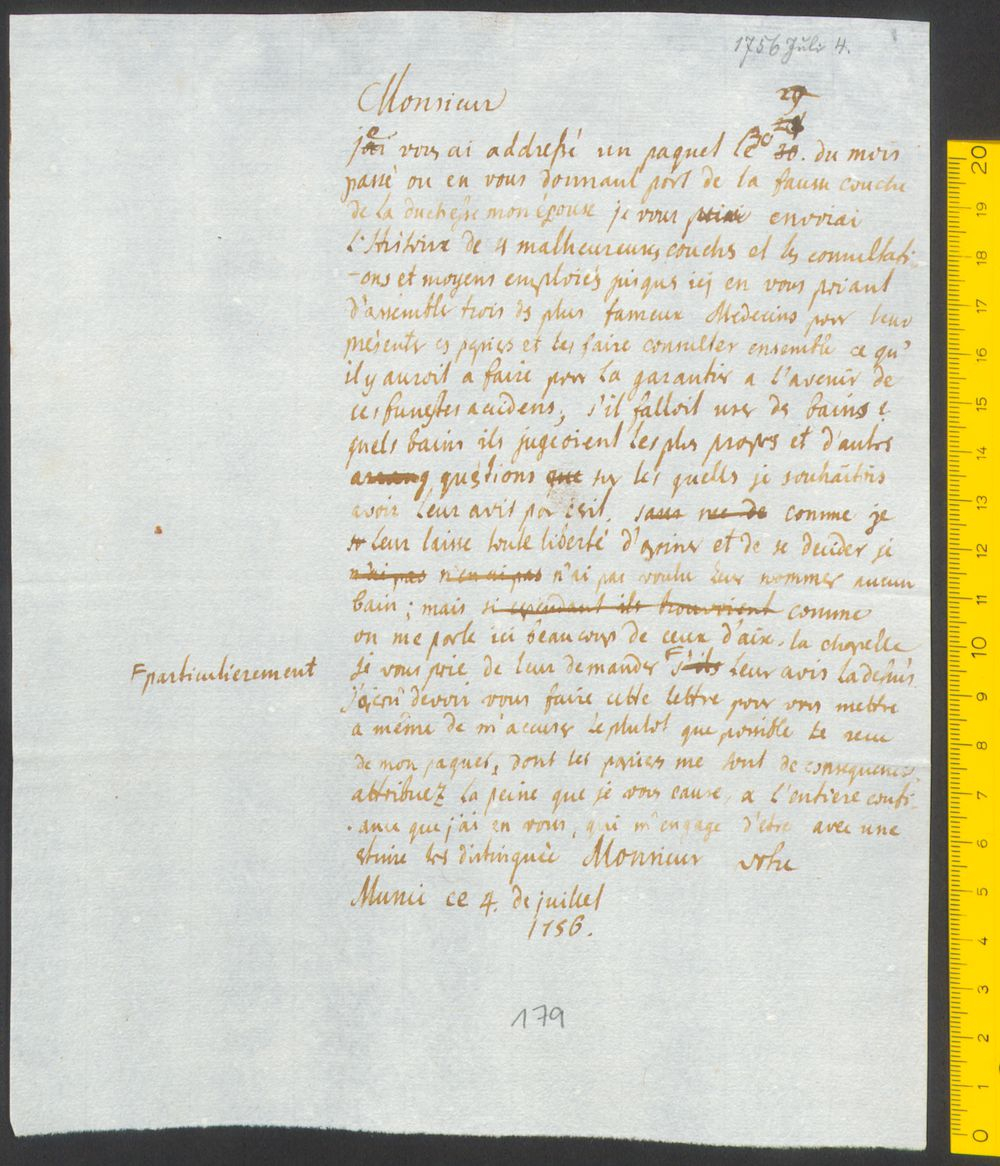 1756 Juli 4.
Monsieur
29
je vous ai addressé un paquet le 30 30. du mois
passé ou en vous donnant part de la fausse couche
de la duchesse mon épouse je vous envoiai
l'Histoire de 4 malheureuses couches et les consultati-
-ons et moyens emploiés jusqus icj en vous priant
d'assembler trois des plus fameux Medecins pour leur
présenter ces papiers et les faire consulter ensemble ce qu'
il y auroit a faire pour la garantir a l'avenir de
ces funestes accidens, s'il falloit user de bains &
quels bains ils jugeoient les plus propres et d'autres
arrang quéstions que sur les quelles je souhaitrois
avoir leur avis par écrit, sans rue de comme je
leur laisse toute liberté d'opiner et de se decider je
n'ai pas n'en ai pas n'ai pas voulu leur nommer aucun
bain; mais si cependant ils trouvoient comme
on me parle ici beaucoup de ceux d'aix. la chapelle
je vous prie de leur demander F s'ils leur avis ladessus.
F particulierement
j'ai crû devoir vous faire cette lettre pour vous mettre
a même de m'accuser le plutot que possible le recu
de mon paquet, dont les papiers me sont de consequences,
attribuez la peine que je vous cause, a l'entiere confi-
-ance que j'ai en vous, qui m'engage d'etre avec une
estime tres distinguée Monsieur votre
Munic ce 4. de juillet
1756.
179